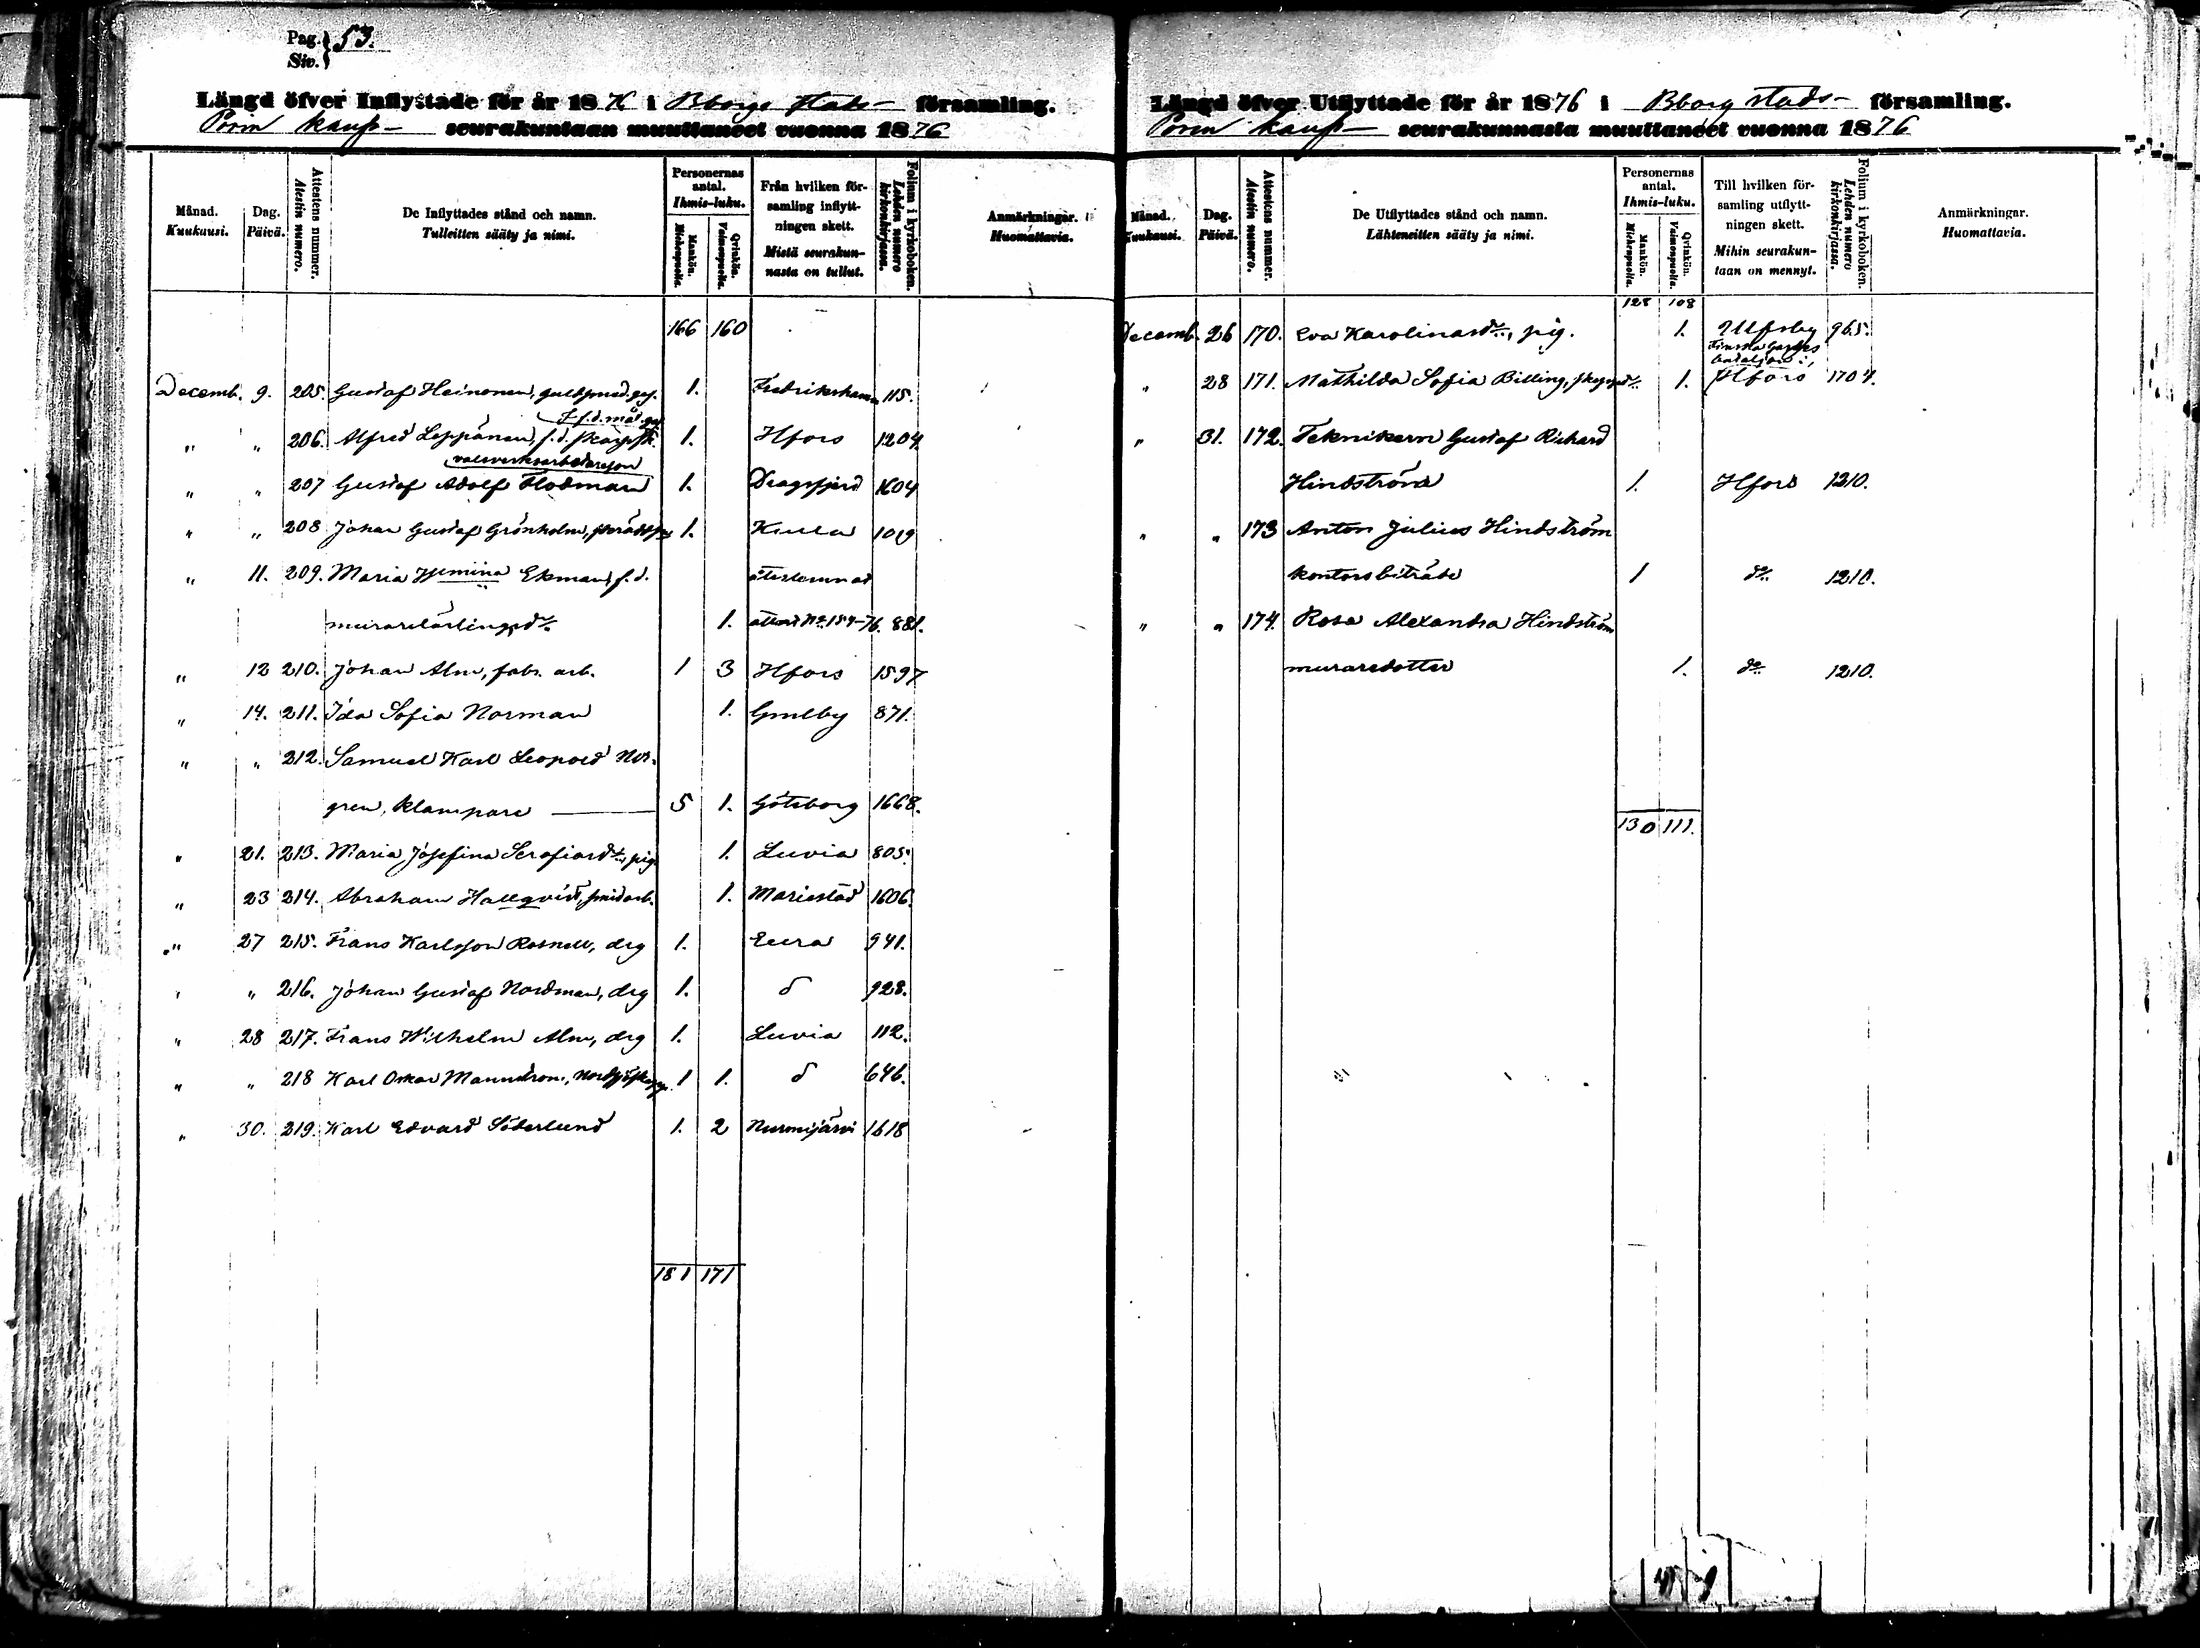 Pag. 53.
Siv.
Längd öfver Inflyttade för år 1876 i Bborgs stads- församling.
Porin kaup- seurakuntaan muuttaneet vuonna 1876
Månad. Kuukausi.
Dag. Päivä.
Attestens nummer. Atestin numero.
De Inflyttades stånd och namn.
Tulleitten sääty ja nimi.
Personernas antal. Ihmis-luku.
Mankön. Miehenpuolia.
Qvinkön. Vaimonpuolia.
Från hvilken församling inflyttningen skett.
Mistä seurakunnasta on tullut.
Folium i kyrkoboken. Lehden numero kirkonkirjassa.
Anmärkningar. Huomattavia.
166 160
Decemb. 9. 205. Gustaf Heinonen, guldsmed.ges. 1. Fredrikshamn 115.
" " 206. Alfred Leppänen, f.d. skarpsk. 1. Hfors 1204.
valsverksarbetareson
" " 207 Gustaf Adolf Flodman 1. Dragsfjerd 1604
" " 208 Johan Gustaf Grönholm, 1. Kulla 1019
" 11. 209. Maria Hjemina Ekman, f.d. återlemnad
murarelärlingsd:r 1. attest No 157-76. 881.
" 12 210. Johan Alm, fabr. arb. 1 3 Hfors 1597
" 14. 211. Ida Sofia Norman 1. Gmlby 871.
" " 212. Samuel Karl Leopold Nor-
gren, klampare 5 1. Göteborg 1668.
" 21. 213. Maria Josefina Serafiasd:r, pig. 1. Luvia 805.
" 23 214. Abraham Hallqvist, smidarb. 1. Mariestad 1606.
" 27 215. Frans Karlsson Rosnell, drg 1. Eura 941.
" " 216. Johan Gustaf Nordman, drg 1. d 928.
" 28 217. Frans Wilhelm Alm, drg 1. Luvia 112.
" " 218 Karl Oskar Mannström, 1 1. d 646.
" 30. 219. Karl Edvard Söderlund 1. 2 Nurmijärvi 1618
181 171
Längd öfver Utflyttade för år 1876 i Bborg stads- församling.
Porin kaup- seurakunnasta muuttaneet vuonna 1876
Månad. Kuukausi.
Dag. Päivä.
Attestens nummer. Atestin numero.
De Utflyttades stånd och namn.
Lähteneitten sääty ja nimi.
Personernas antal. Ihmis-luku.
Mankön. Miehenpuolia.
Qvinkön. Vaimonpuolia.
Till hvilken församling utflyttningen skett.
Mihin seurakuntaan on mennyt.
Folium i kyrkoboken. Lehden numero kirkonkirjassa.
Anmärkningar. Huomattavia.
128 108
Decemb. 26 170. Eva Karolinasd:r, pig. 1. Ulfsby 965.
Finska Gardes bataljon i
" 28 171. Mathilda Sofia Billing, 1. Hfors 1707.
" 31. 172. Teknikern Gustaf Richard
Hindström 1. Hfors 1210.
" " 173 Anton Julius Hindström
kontorsbiträde 1 do 1210.
" " 174. Rosa Alexandra Hindström
muraredotter 1. do 1210.
130 111.